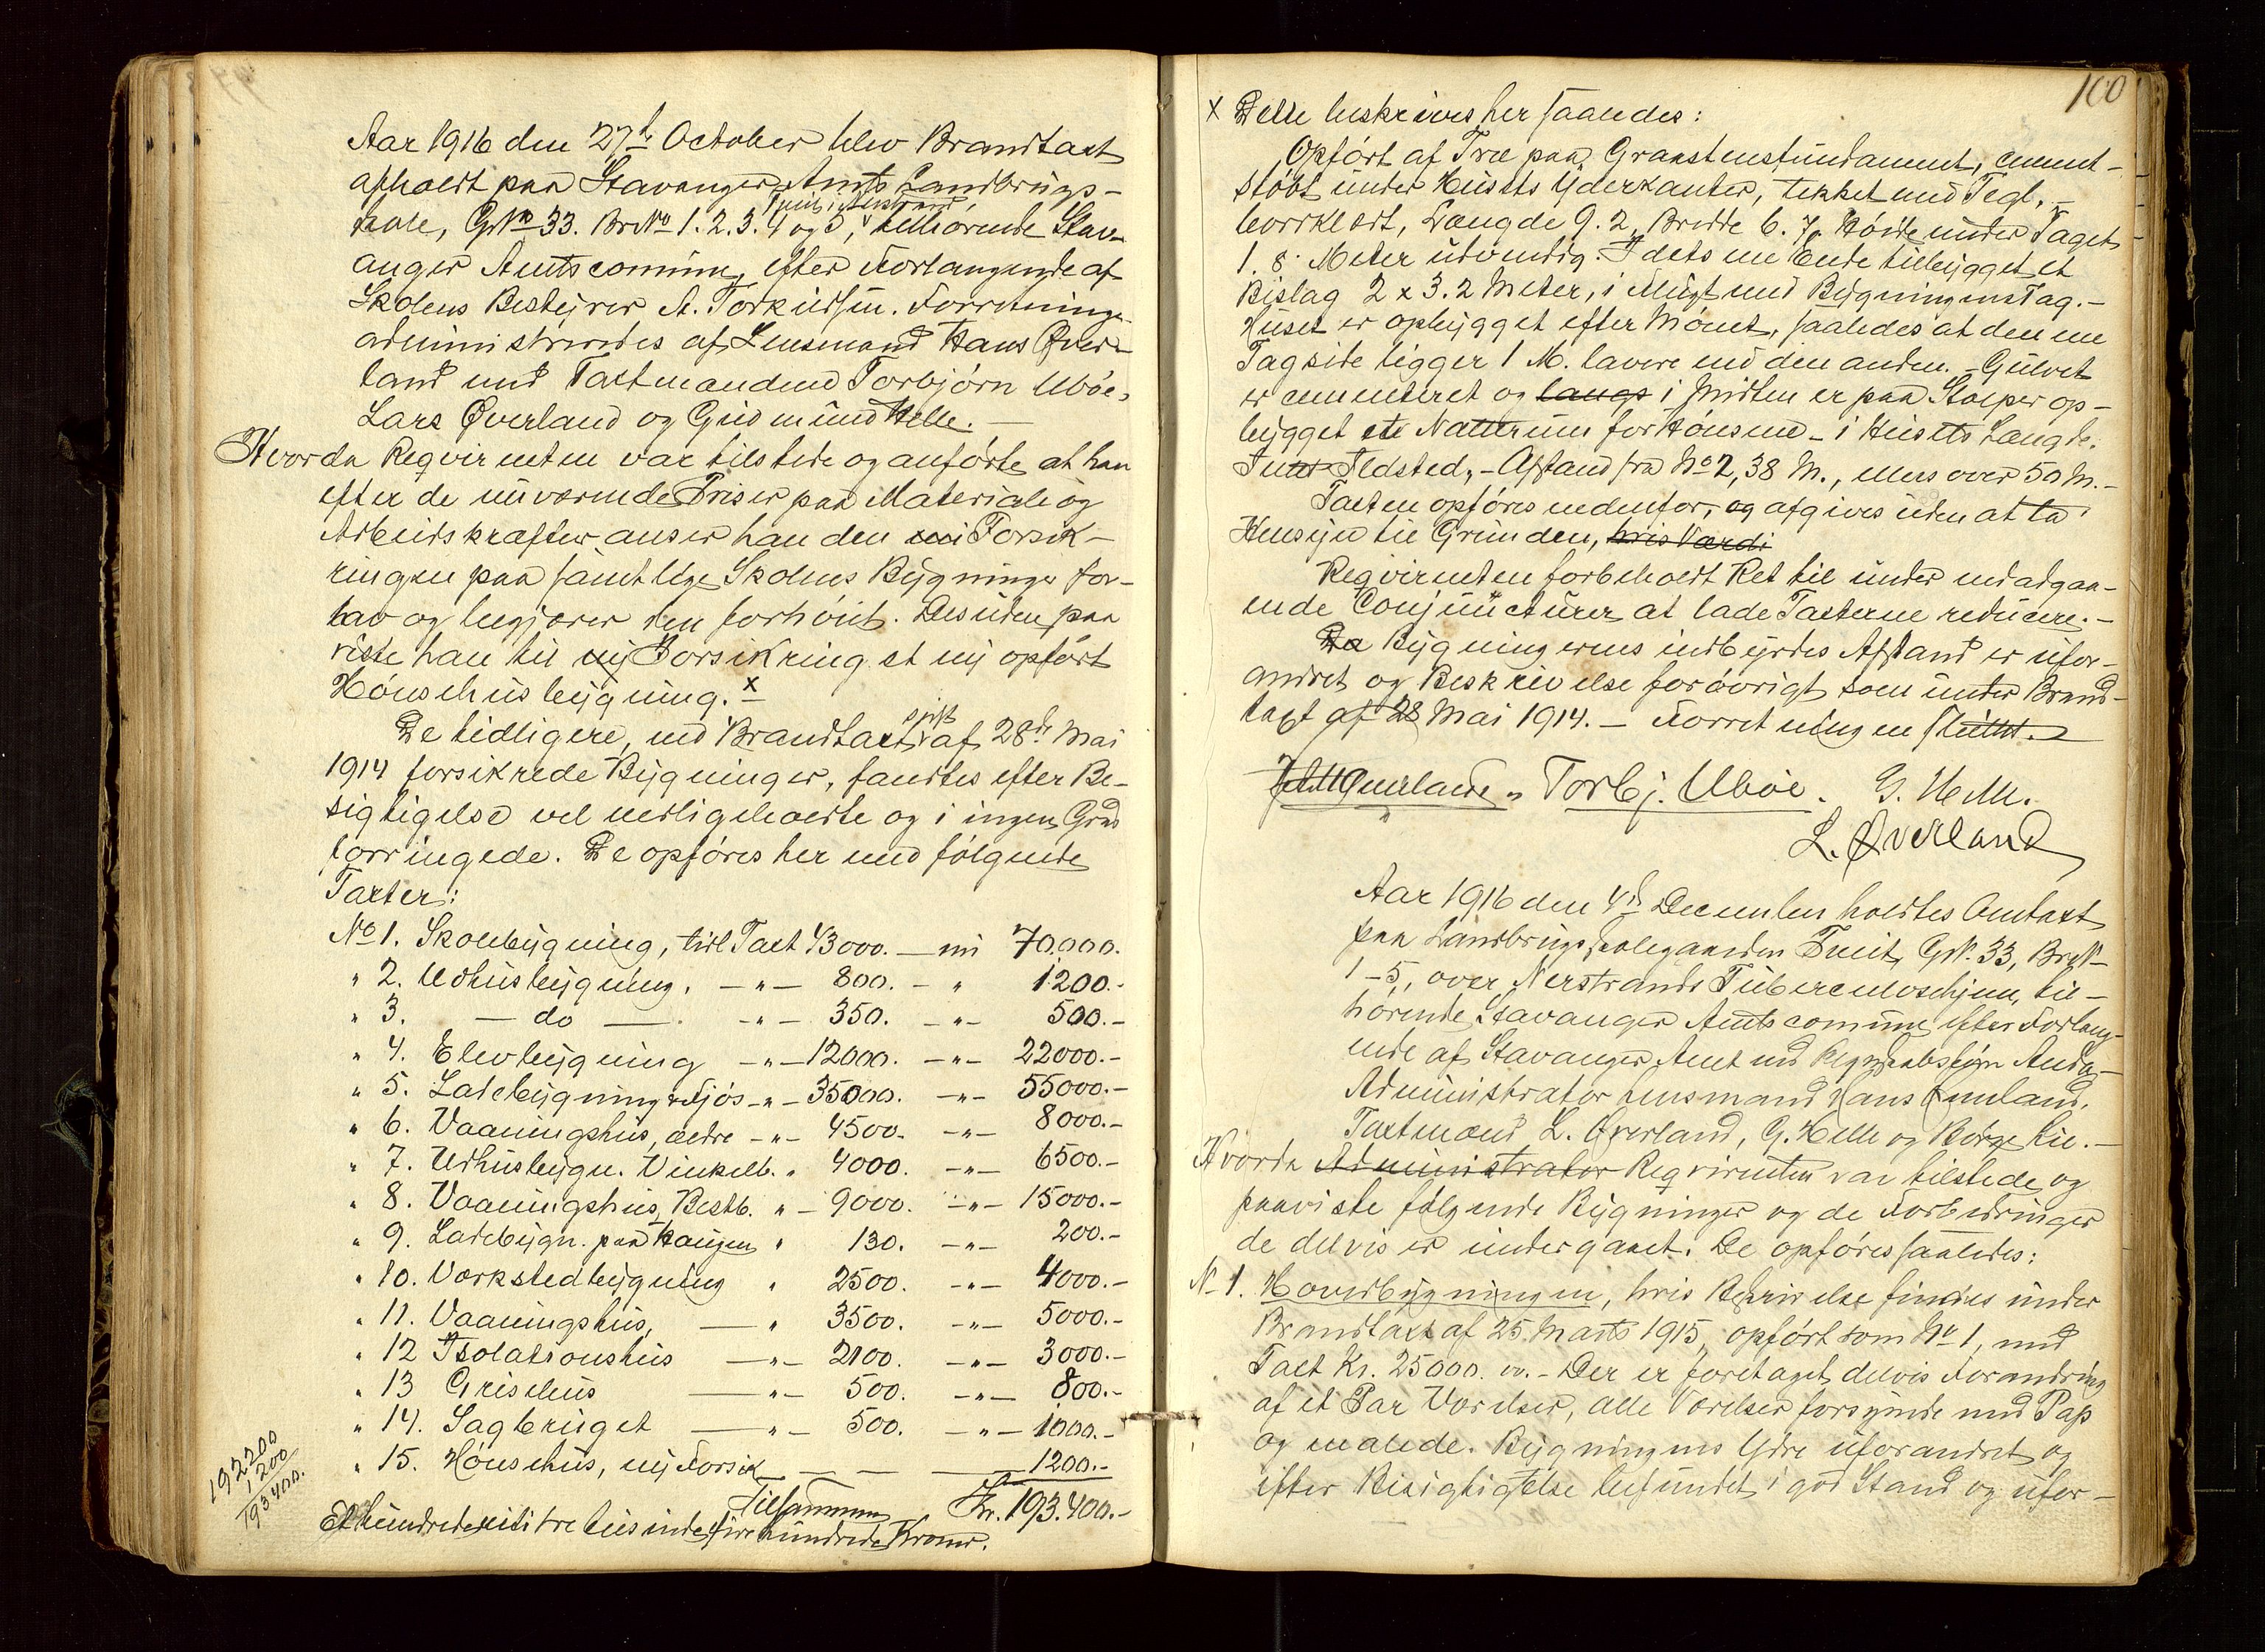 Aar 1916 den 27de October blev Brandtaxt
afholdt paa Stavanger Amts Landbrugs-
skole, GNo 33. BrNo 1. 2. 3. 4 og 5, Tveit i Nerstrand, tilhørende Stav-
anger Amtscomune, efter Forlangende af
Skolens Bestyrer A. Torkildsen. Forretninge
administreredes af Lensmand Hans Øver-
land med Taxtmændene Torbjørn Ubøe,
Lars Øverland og Gudmund Helle. —
Hvorda Reqvirenten var tilstede og anførte at han
efter de nuværende Priser paa Materiale og
Arbeidskræfter anser han den Forsik-
ringen paa samtlige Skolens Bygninger for-
lav og begjærer den forhøiet. Desuden paa
viste han til ny Forsikring et ny opført
Hønsehusbygning. x
De tidligere, ved Brandtaxt sidst af 28de Mai
1914 forsikrede Bygninger, fandtes efter Be-
sigtigelse vel vedligeholdte og i ingen Grad
forringede. De opføres her med følgende
Taxter:
No 1. Skolebygning, tidl Taxt 43000. — nu 70.000.
" 2. Udhusbygning. —"— 800. — " 1200.-
" 3. — do — —"— 350. —"— 500.-
" 4. Elevbygning —"— 12000. —"— 22000.-
" 5. Ladebygning & Fjøs —"— 35000. —"— 55000.-
" 6. Vaaningshus, ældre —"— 4500. —"— 8000.-
" 7. Udhusbygn. Vinkelb. " 4000. —"— 6500.-
" 8. Vaaningshus, Bestb. " — 9000. —"— 15000.-
" 9. Ladebygn. paa Haugen " 130. —"— 200.-
" 10. Værkstedbygning " 2500. —"— 4000.-
" 11. Vaaningshus, — " 3500. —"— 5000.-
" 12 Isolationshus —"— 2100. —"— 3000.-
" 13 Grisehus —"— 500. —"— 800.-
" 14. Sagbruget —"— 500. —"— 1000.-
" 15. Hønsehus, ny Forsik — — — 1200.-
Tilsammen Kr. 193.400.-
Et hundrede nitti tre tusinde fire hundrede Kroner.
192200
1200
193400.
100
x Dette beskrives her saaledes:
Opført af Træ paa Graastensfundament, cement-
støbt under Husets Yderkanter, tækket med Tegl, -
bordklædt, Længde 9.2, Bredde 6.7, Høide under Taget
1.8. Meter udvendig. I dets ene Ende tilbygget et
Bislag 2 x 3.2 Meter, i Flugt med Bygningens Tag. -
Huset er opbygget efter Mønet, saaledes at den ene
Tagside ligger 1 M. lavere end den anden. - Gulvet
er cementeret og langs i Midten er paa Stolper op-
bygget et Natterum for Hønsene - i Husets Længde.
Intet Ildsted, - Afstand fra No 2, 38 M., ellers over 50 M. -
Taxten opføres nedenfor, og afgives uden at ta
Hensyn til Grunden, hvis Værdi
Reqvirenten forbeholdt Ret til under nedadgaa-
ende Conjuncturer at lade Taxterne reducere. -
De Bygningernes indbyrdes Afstand er ufor-
andret og Beskrivelse forøvrigt som under Brand-
taxt af 28 Mai 1914. - Forretningen sluttet.
Torbj. Ubøe. G. Helle.
L. Øverland
Aar 1916 den 4de December holdtes Omtaxt
paa Landbrugsskolegaarden Tveit, GN. 33, BrN
1-5, over Nerstrands Tuberculosehjem, til-
hørende Stavanger Amtscomune efter Forlang-
ende af Stavanger Amt ved Regnskabsfører Anda
Administrator Lensmand Hans Øverland.
Taxtmænd L. Øverland, G. Helle og Børge Lie. -
Hvorda Administrator Reqvirenten var tilstede og
paaviste følgende Bygninger og de Forbedringer
de delvis er undergaaet. De opføres saaledes:
N 1. Hovedbygningen, hvis Beskrivelse findes under
Brandtaxt af 25 Marts 1915, opført som No 1, med
Taxt Kr. 25000. oo. - Der er foretaget delvis Forandring
af et Par Værelser, alle Værelser forsynede med Pap
og malede. Bygningens Ydre uforandret og
efter Besigtigelse befundet i god Stand og ufor-